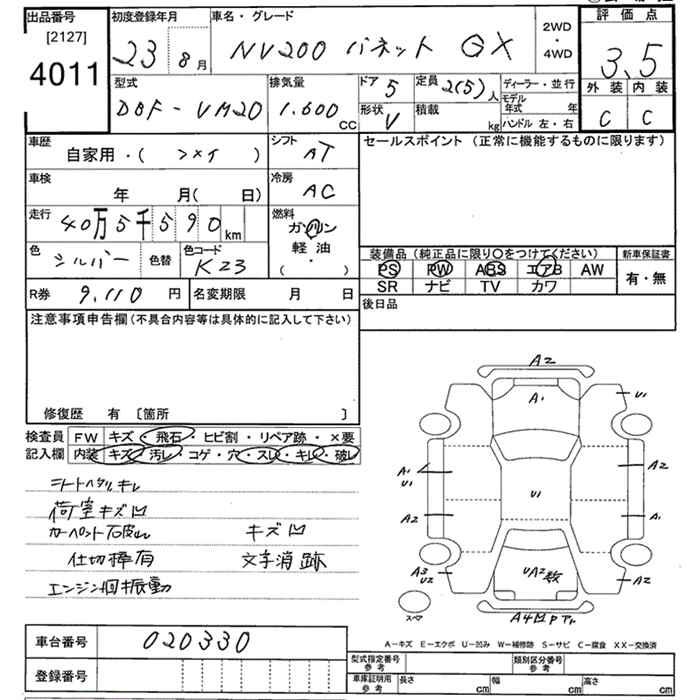 出品番号 初度登録年月 車名・グレード 評価点
[2127]
4011
23 8月 NV200 バネット GX 2WD・4WD 3.5
型式 排気量 ドア 5 定員 2(5)人 ディーラー・並行 外装 内装
DBF-VM20 1.600cc 形状 V 積載 kg モデル年式 年 C C
ハンドル 左・右
車歴 シフト セールスポイント(正常に機能するものに限ります)
自家用・( ) AT
車検 冷房
年 月(日) AC
走行 40万5千590km 燃料
ガソリン
軽油
( )
色 シルバー 色替 色コード K23
装備品(純正品に限り○をつけてください) 新車保証書
PS PW ABS エアB AW 有・無
SR ナビ TV カワ
R券 9,110円 名変期限 月 日 後日品
注意事項申告欄(不具合内容等は具体的に記入して下さい)
修復歴 有 [箇所 ]
検査員 FW キズ・飛石・ヒビ割・リペア跡・×要
記入欄 内装 キズ・汚レ・コゲ・穴・スレ・キレ・破レ
シートヘタリ キレ
荷室キズ凹
カーペント
仕切棒有
エンジン 振動
キズ凹
文字消跡
A2
A1 U1
A1 A2
U1 U1
A2 A1
A3 UA2数 A2
U2
スペア
A4凹
A-キズ E-エクボ U-凹み W-補修跡 S-サビ C-腐食 XX-交換済
車台番号 020330
登録番号
型式指定番号 参考 類別区分番号 参考
車庫証明用 参考 長さ cm 幅 cm 高さ cm